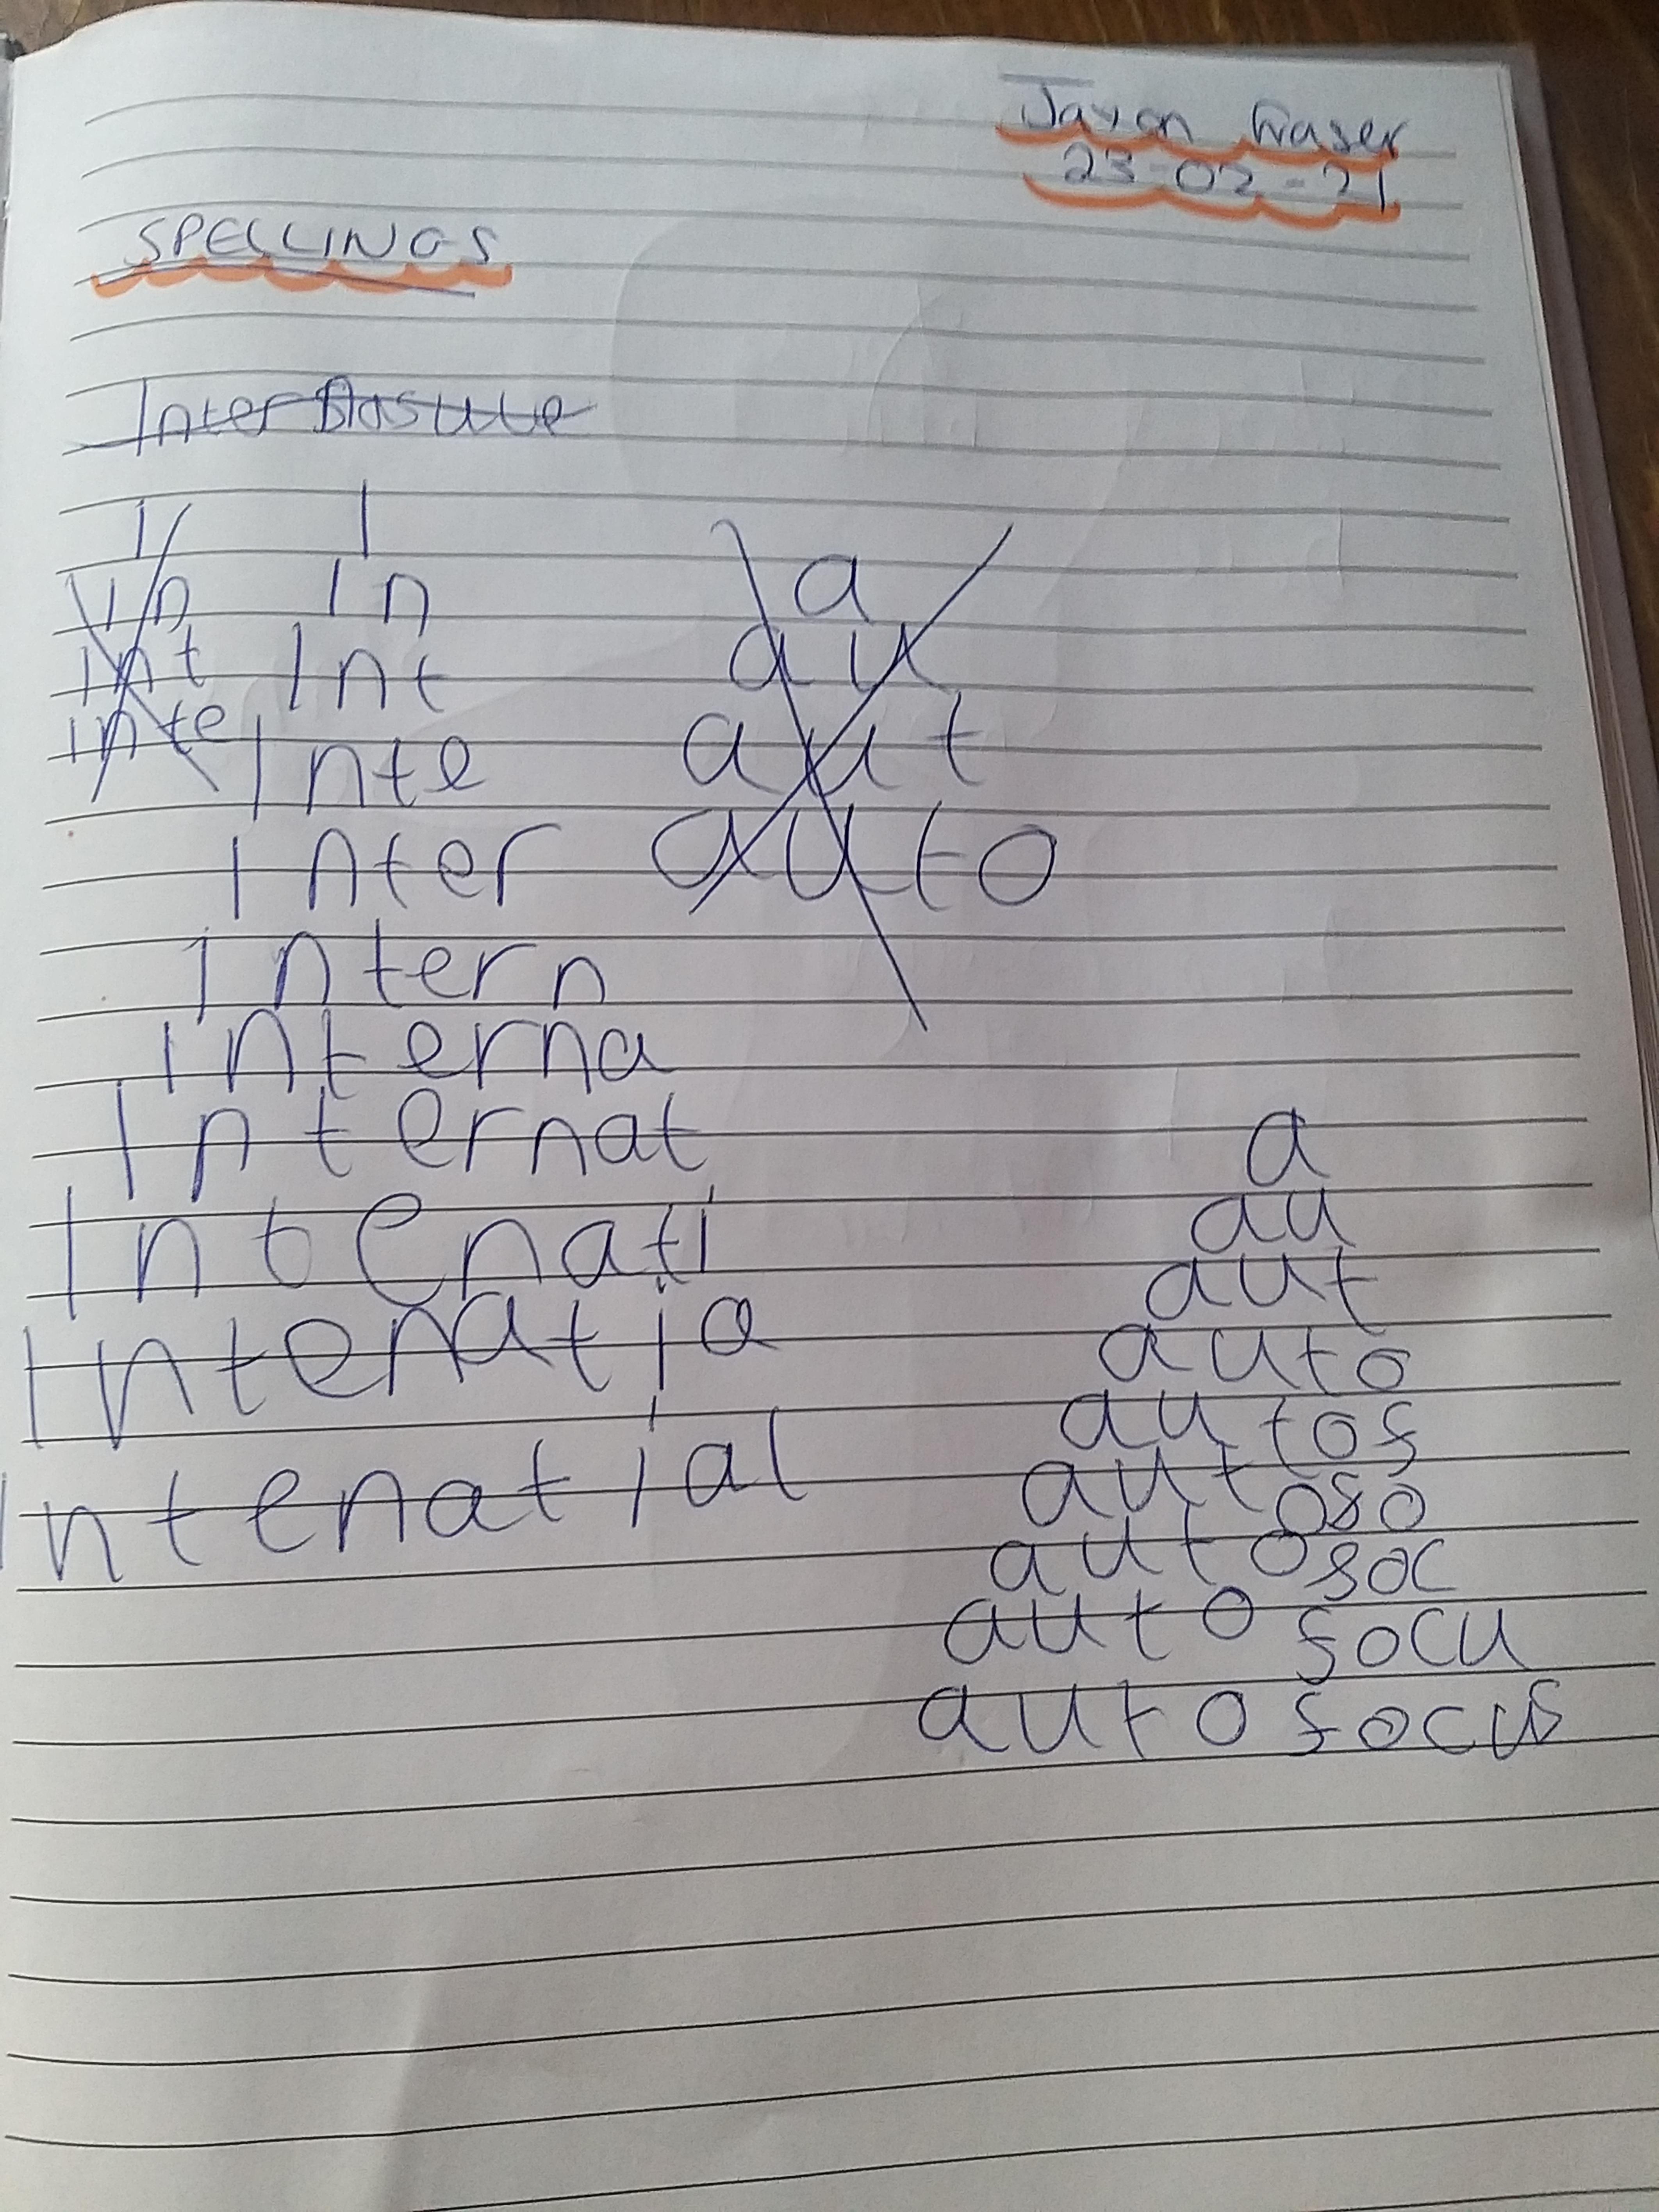 Jaxon Fraser
23-02-21
SPELLINGS
Inter
I
In
Int
Inte
I
In
Int
Inte
Inter
Intern
Interna
Internat
Intenati
Intenatia
Intenatial
a
au
aut
auto
a
au
aut
auto
autof
autofo
autofoc
autofocu
autofocus